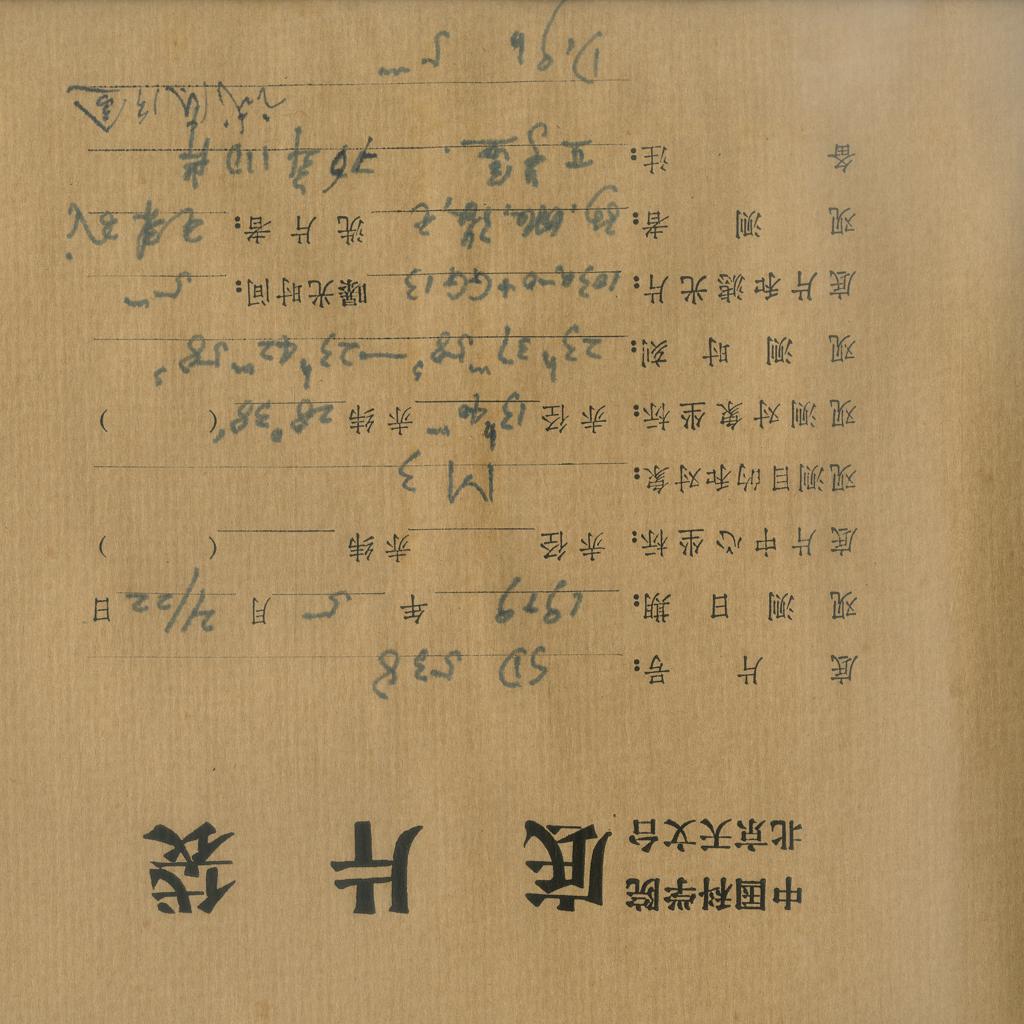 中国科学院
北京天文台
底 片 袋
底 片 号: SD 538
观 测 日 期: 1979 年 5 月 21/22 日
底片中心坐标: 赤径 赤纬 ( )
观测目的和对象: M 3
观测对象坐标: 赤径 13h40m 赤纬 28°38′ ( )
观 测 时 刻: 23h37m58s — 23h42m58s
底片和滤光片: 103a-O+GG13 曝光时间: 5m
观 测 者: 洗 片 者:
备 注: 76年11D片
5m